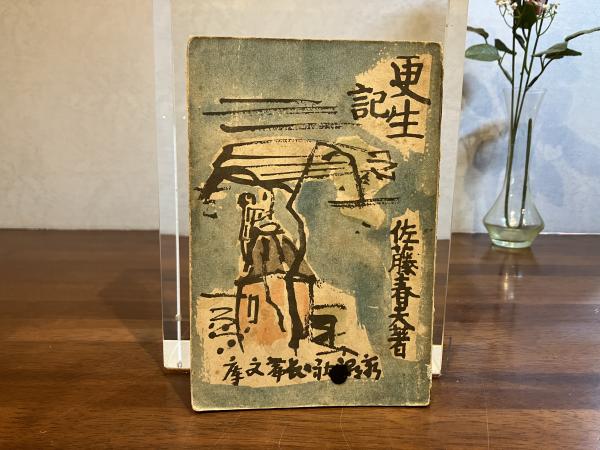 更生
記
佐藤春夫著
新潮社・長篇文庫